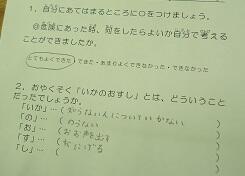 1．自分にあてはまるところに○をつけましょう。
◎危険にあった時、何をしたらよいか自分で考える
ことができましたか。
とてもよくできた・できた・あまりよくできなかった・できなかった
2．おやくそく「いかのおすし」とは、どういうこと
だったでしょうか。
「いか」…（知らない人についていかない）
「の」…（のらない）
「お」…（おお声を出す）
「す」…（すぐにげる）
「し」…（ ）